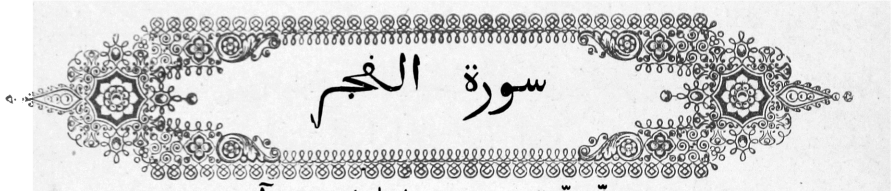 سورة الفجر